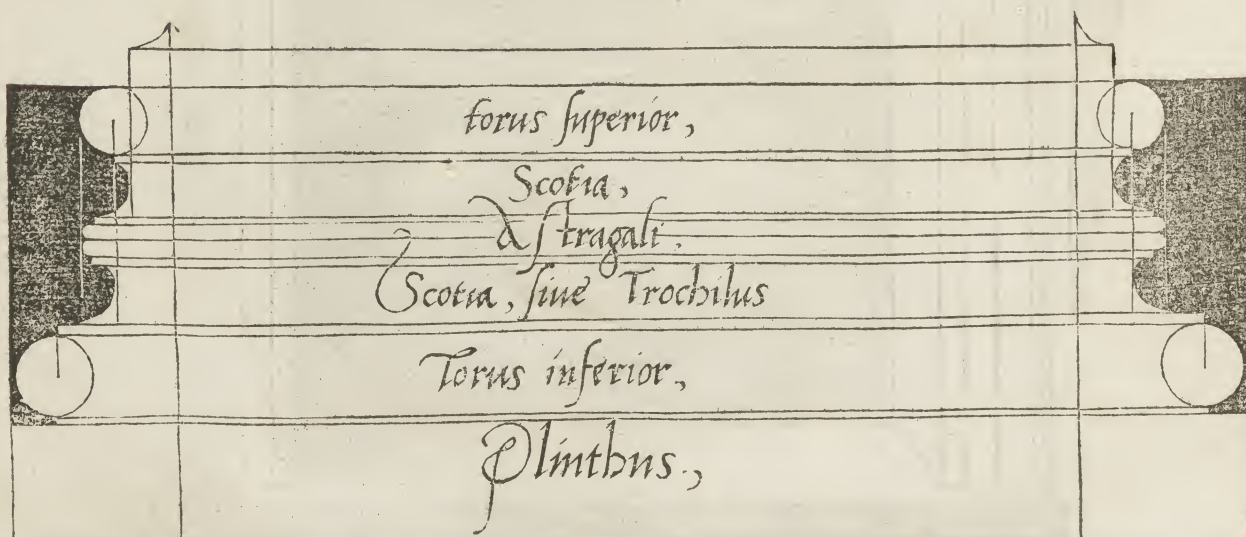 torus ſuperior,
Scotia,
Aſtragali.
Scotia, ſiue Trochilus
Torus inferior,
Plinthus.,